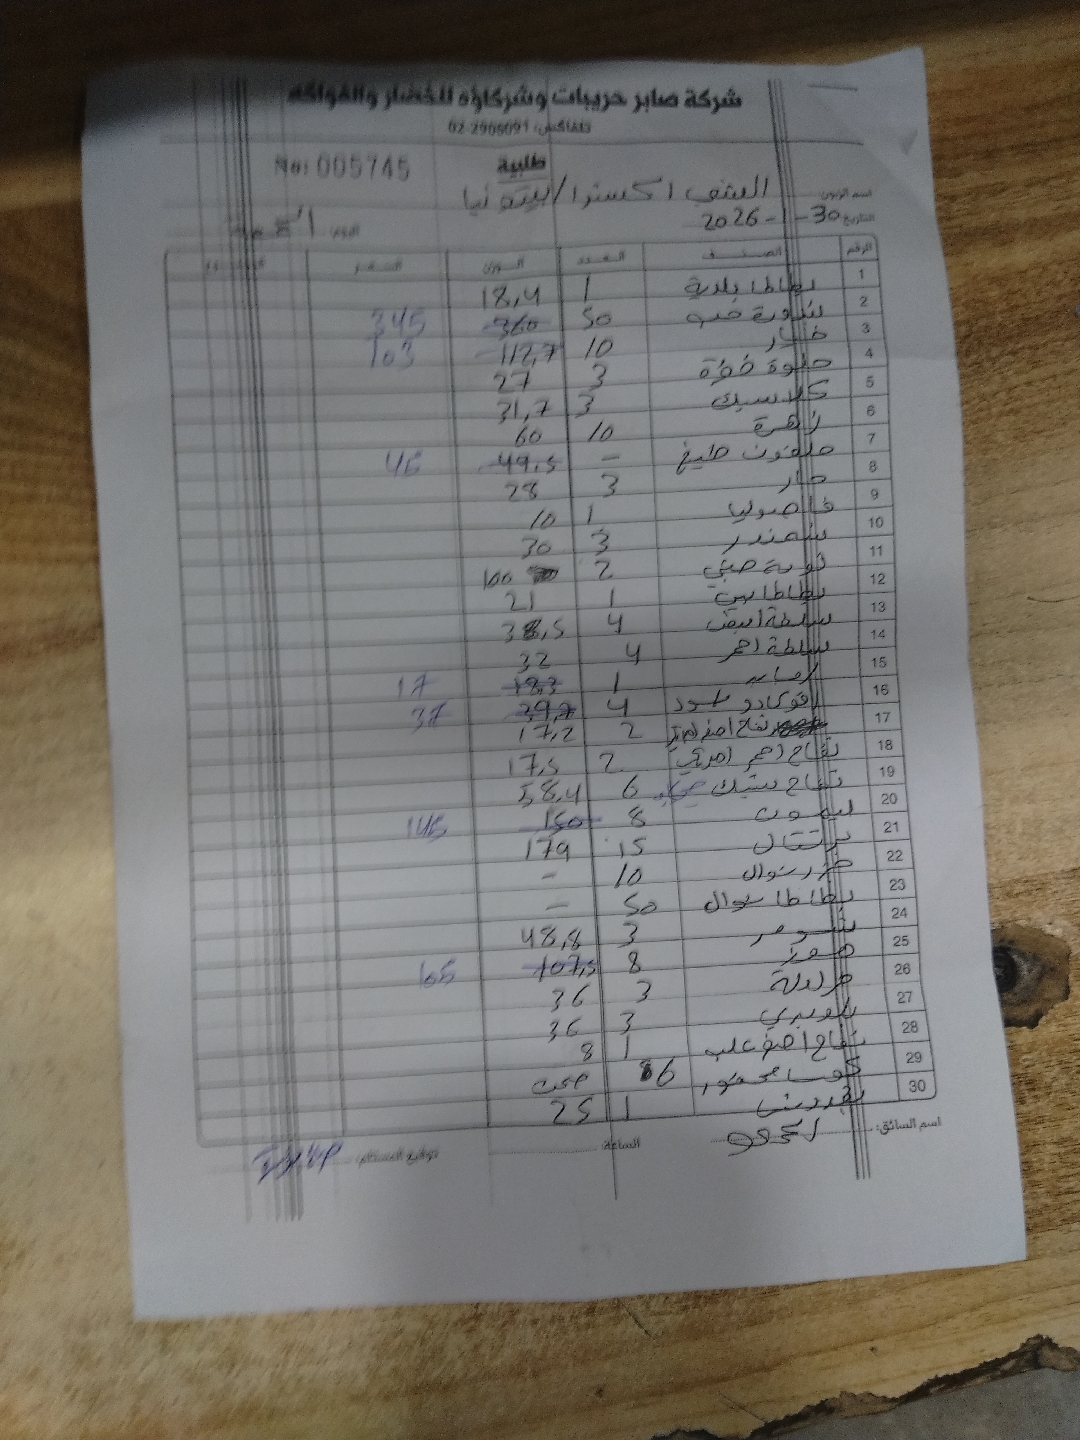 شركة صابر حريبات وشركاؤه للخضار والفواكه
تلفاكس: 02-2906091
طلبية
No: 005745
اسم الزبون: الشف اكسترا / بيتونيا
التاريخ: 30-1-2026 اليوم: الجمعة
الرقم الصنف العدد الوزن السعر
1 بطاطا بلدية 1 18,4
2 بندورة حبه 50 360 345
3 خيار 10 112,7 103
4 حلوة خضرة 3 27
5 كلاسيك 3 31,7
6 زهرة 10 60
7 ملفوف طبيخ - 49,5 46
8 حار 3 28
9 فاصوليا 1 10
10 شمندر 3 30
11 ثومة صيني 2 100
12 بطاطا بيبي 1 21
13 سلطة ابيض 4 38,5
14 سلطة احمر 4 32
15 1 18,3 17
16 افوكادو 4 39,7 37
17 تفاح اخضر 2 17,2
18 تفاح احمر امريكي 2 17,5
19 تفاح 6 58,4
20 ليمون 8 150 145
21 برتقال 15 179
22 جزر شوال 10 -
23 بطاطا شوال 50 -
24 شومر 3 48,8
25 موز 8 107,5 105
26 3 36
27 3 36
28 تفاح اصفر علب 1 8
29 كوسا محفور 6
30 بقدونس 1 25
اسم السائق: الساعة: توقيع المستلم: